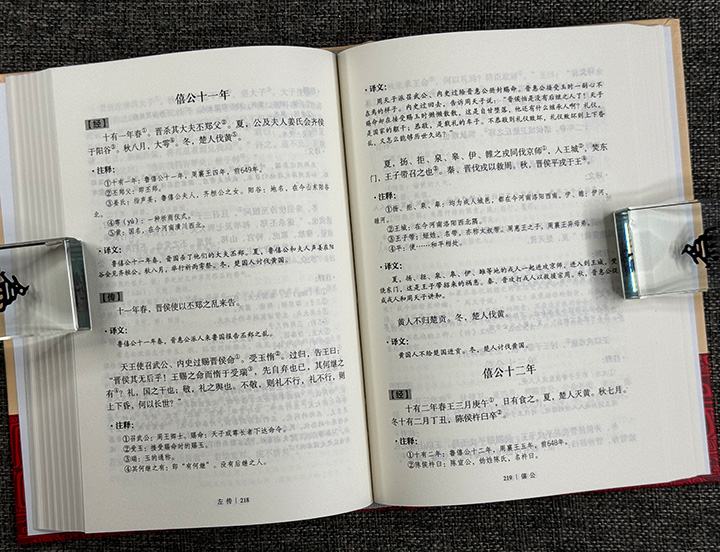 僖公十一年
【经】
十有一年春①。晋杀其大夫丕郑父②。夏，公及夫人姜氏会齐侯
于阳谷③。秋八月，大雩④。冬，楚人伐黄⑤。
·注释：
①十有一年：鲁僖公十一年，周襄王四年，前649年。
②丕郑父：即丕郑。
③姜氏：指声姜，鲁僖公夫人，齐桓公之女。阳谷：地名，在今山东阳谷
北。
④雩（yú）：一种祈雨仪式。
⑤黄：国名，在今河南潢川西北。
·译文：
鲁僖公十一年春，晋国杀了他们的大夫丕郑。夏，鲁僖公和夫人声姜在阳
谷会见齐桓公。秋八月，举行祈雨雩祭。冬，楚国人讨伐黄国。
【传】
十一年春，晋侯使以丕郑之乱来告。
·译文：
鲁僖公十一年春，晋惠公派人来鲁国报告丕郑之乱。
天王使召武公、内史过赐晋侯命①。受玉惰②。过归，告王曰：
“晋侯其无后乎！王赐之命而惰于受瑞③，先自弃也已，其何继之
有④？礼，国之干也；敬，礼之舆也。不敬，则礼不行，礼不行，则
上下昏，何以长世？”
·注释：
①召武公：周王卿士。赐命：天子或尊长者下达命令。
②受玉：接受赐命时的赐玉。
③瑞：玉的通称。
④其何继之有：即“有何继”。没有后继之人。
左传｜218
·译文：
周天子派召武公、内史过给晋惠公颁封赐命。晋惠公接受玉时一副心不
在焉的样子。内史过回去，告诉周天子说：“晋侯怕是没有后继之人了！天子
赐命却在接受赐玉时懒懒散散，这是自甘堕落，他还有什么继承人啊？礼仪，
是国家的躯干；恭敬，是载礼的车子。不恭敬则礼仪败坏，礼仪败坏则上下昏
乱，又怎么能够历世久远？”
夏，扬、拒、泉、皋、伊、雒之戎同伐京师①，入王城②，焚东
门，王子带召之也③。秦、晋伐戎以救周。秋，晋侯平戎于王④。
·注释：
①扬、拒、泉、皋：均为戎人城邑，都在今河南洛阳西南。伊、雒：伊河、
雒河。
②王城：在今河南洛阳西北隅。
③王子带：姬姓，名带，亦称大叔带。周惠王之子，周襄王异母弟。
④平：使……和平相处。
·译文：
夏，扬、拒、泉、皋、伊、雒等地的戎人一起进攻京师，进入到王城，焚
烧东门，这是王子带招来的祸患。秦、晋攻打戎人以救援宗周。秋，晋惠公促
成戎人和周天子讲和。
黄人不归楚贡。冬，楚人伐黄。
·译文：
黄国人不给楚国进贡。冬，楚人讨伐黄国。
僖公十二年
【经】
十有二年春王三月庚午①，日有食之。夏，楚人灭黄。秋七月。
冬十有二月丁丑，陈侯杵臼卒②。
·注释：
①十有二年：鲁僖公十二年，周襄王五年，前648年。
②陈侯杵臼：陈宣公，妫姓陈氏，名杵臼。
219｜僖公